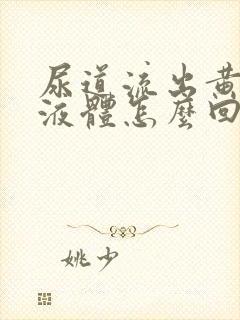 尿道流出黄
液體怎麼回
姚少